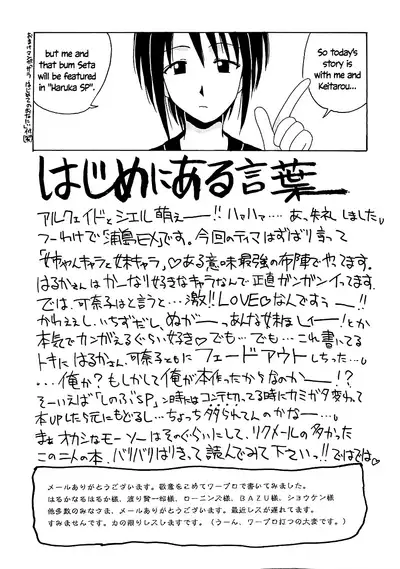 So today's
story is
with me and
Keitarou...
but me and
that bum Seta
will be featured
in "Haruka SP".
はじめにある言葉
アルクェイドとシエル萌えーー!! ハァハァ…. あ、失礼しました。
つーわけで「浦島EX」です。今回のテイマはずばり言って
「姉ちゃんキャラと妹キャラ」♡ある意味最強の布陣でやってます。
はるかさんはかーなり好きなキャラなんで正直ガンガンイッてます。
では、可奈子はと言うと…激!! LOVE♡なんですぅー!!
かわええし、いちずだし、ぬがーっあんな妹ほしィー!とか
本気でカンがえるぐらい好き♡でも…でも…これ書いてる
トキにはるかさん、可奈子ともにフェードアウトしちった…。
…俺か?もしかして俺が本作ったからなのかー!?
そーいえば「しのぶSP」ン時はコンテ切ってる時にカミガタ変わって
本UPしたら元にもどるし…ちょっとタタられてんのかなー…。
まぁオカシなモーソーはそのぐらいにして、リクメールの多かった
この二人の本、バリバリはりきって読んでみて下さいっ!!ではでは♡
メールありがとうございます。敬意をこめてワープロで書いてみました。
はるかなるはるか様、渡り賢一郎様、ローニンズ様、BAZU様、ショウケン様
他多数のみなさま、メールありがとうございます。最近レスが遅れてます。
すみませんです。力の限りレスしますです。(うーん、ワープロ打つの大変です。)